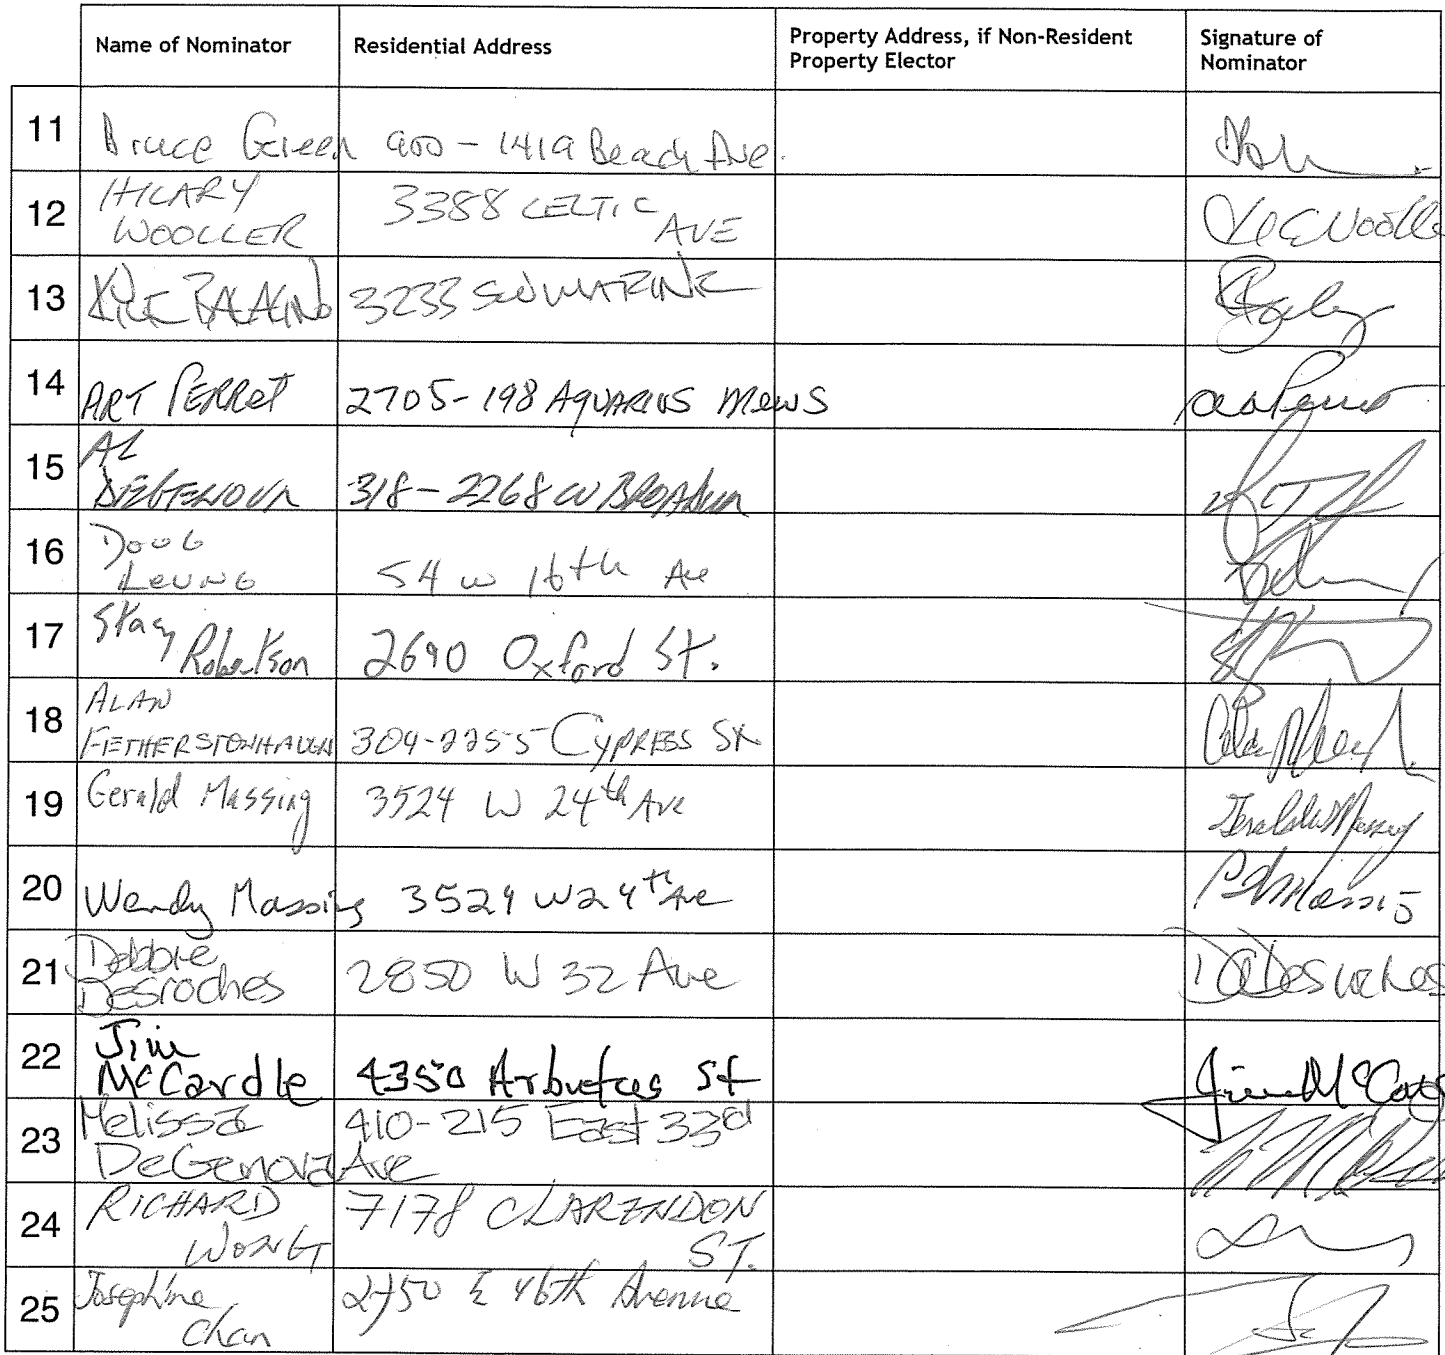 Name of Nominator
Residential Address
Property Address, if Non-Resident
Property Elector
Signature of
Nominator
11
Bruce Green
900 - 1419 Beach Ave.
12
HILARY
WOOLLER
3388 CELTIC
AVE
13
3233 SW MARINE
14
ART PERRET
2705-198 AQUARIUS MEWS
15
AL
DEGENOVA
318-2268 W BROADWAY
16
DOUG
LEUNG
54 W 16th Ave
17
Stacy
Robertson
2690 Oxford St.
18
ALAN
FETHERSTONHAUGH
304-2255 CYPRESS St
19
Gerald Massing
3524 W 24th Ave
20
Wendy Massing
3524 W 24th Ave
21
Debbie
Desroches
2850 W 32 Ave
DDesroches
22
Jim
McCardle
4350 Arbutus St
23
Melissa
DeGenova
410-215 East 33rd
Ave
24
RICHARD
WONG
7178 CLARENDON
ST.
25
Josephine
Chan
2750 E 46th Avenue